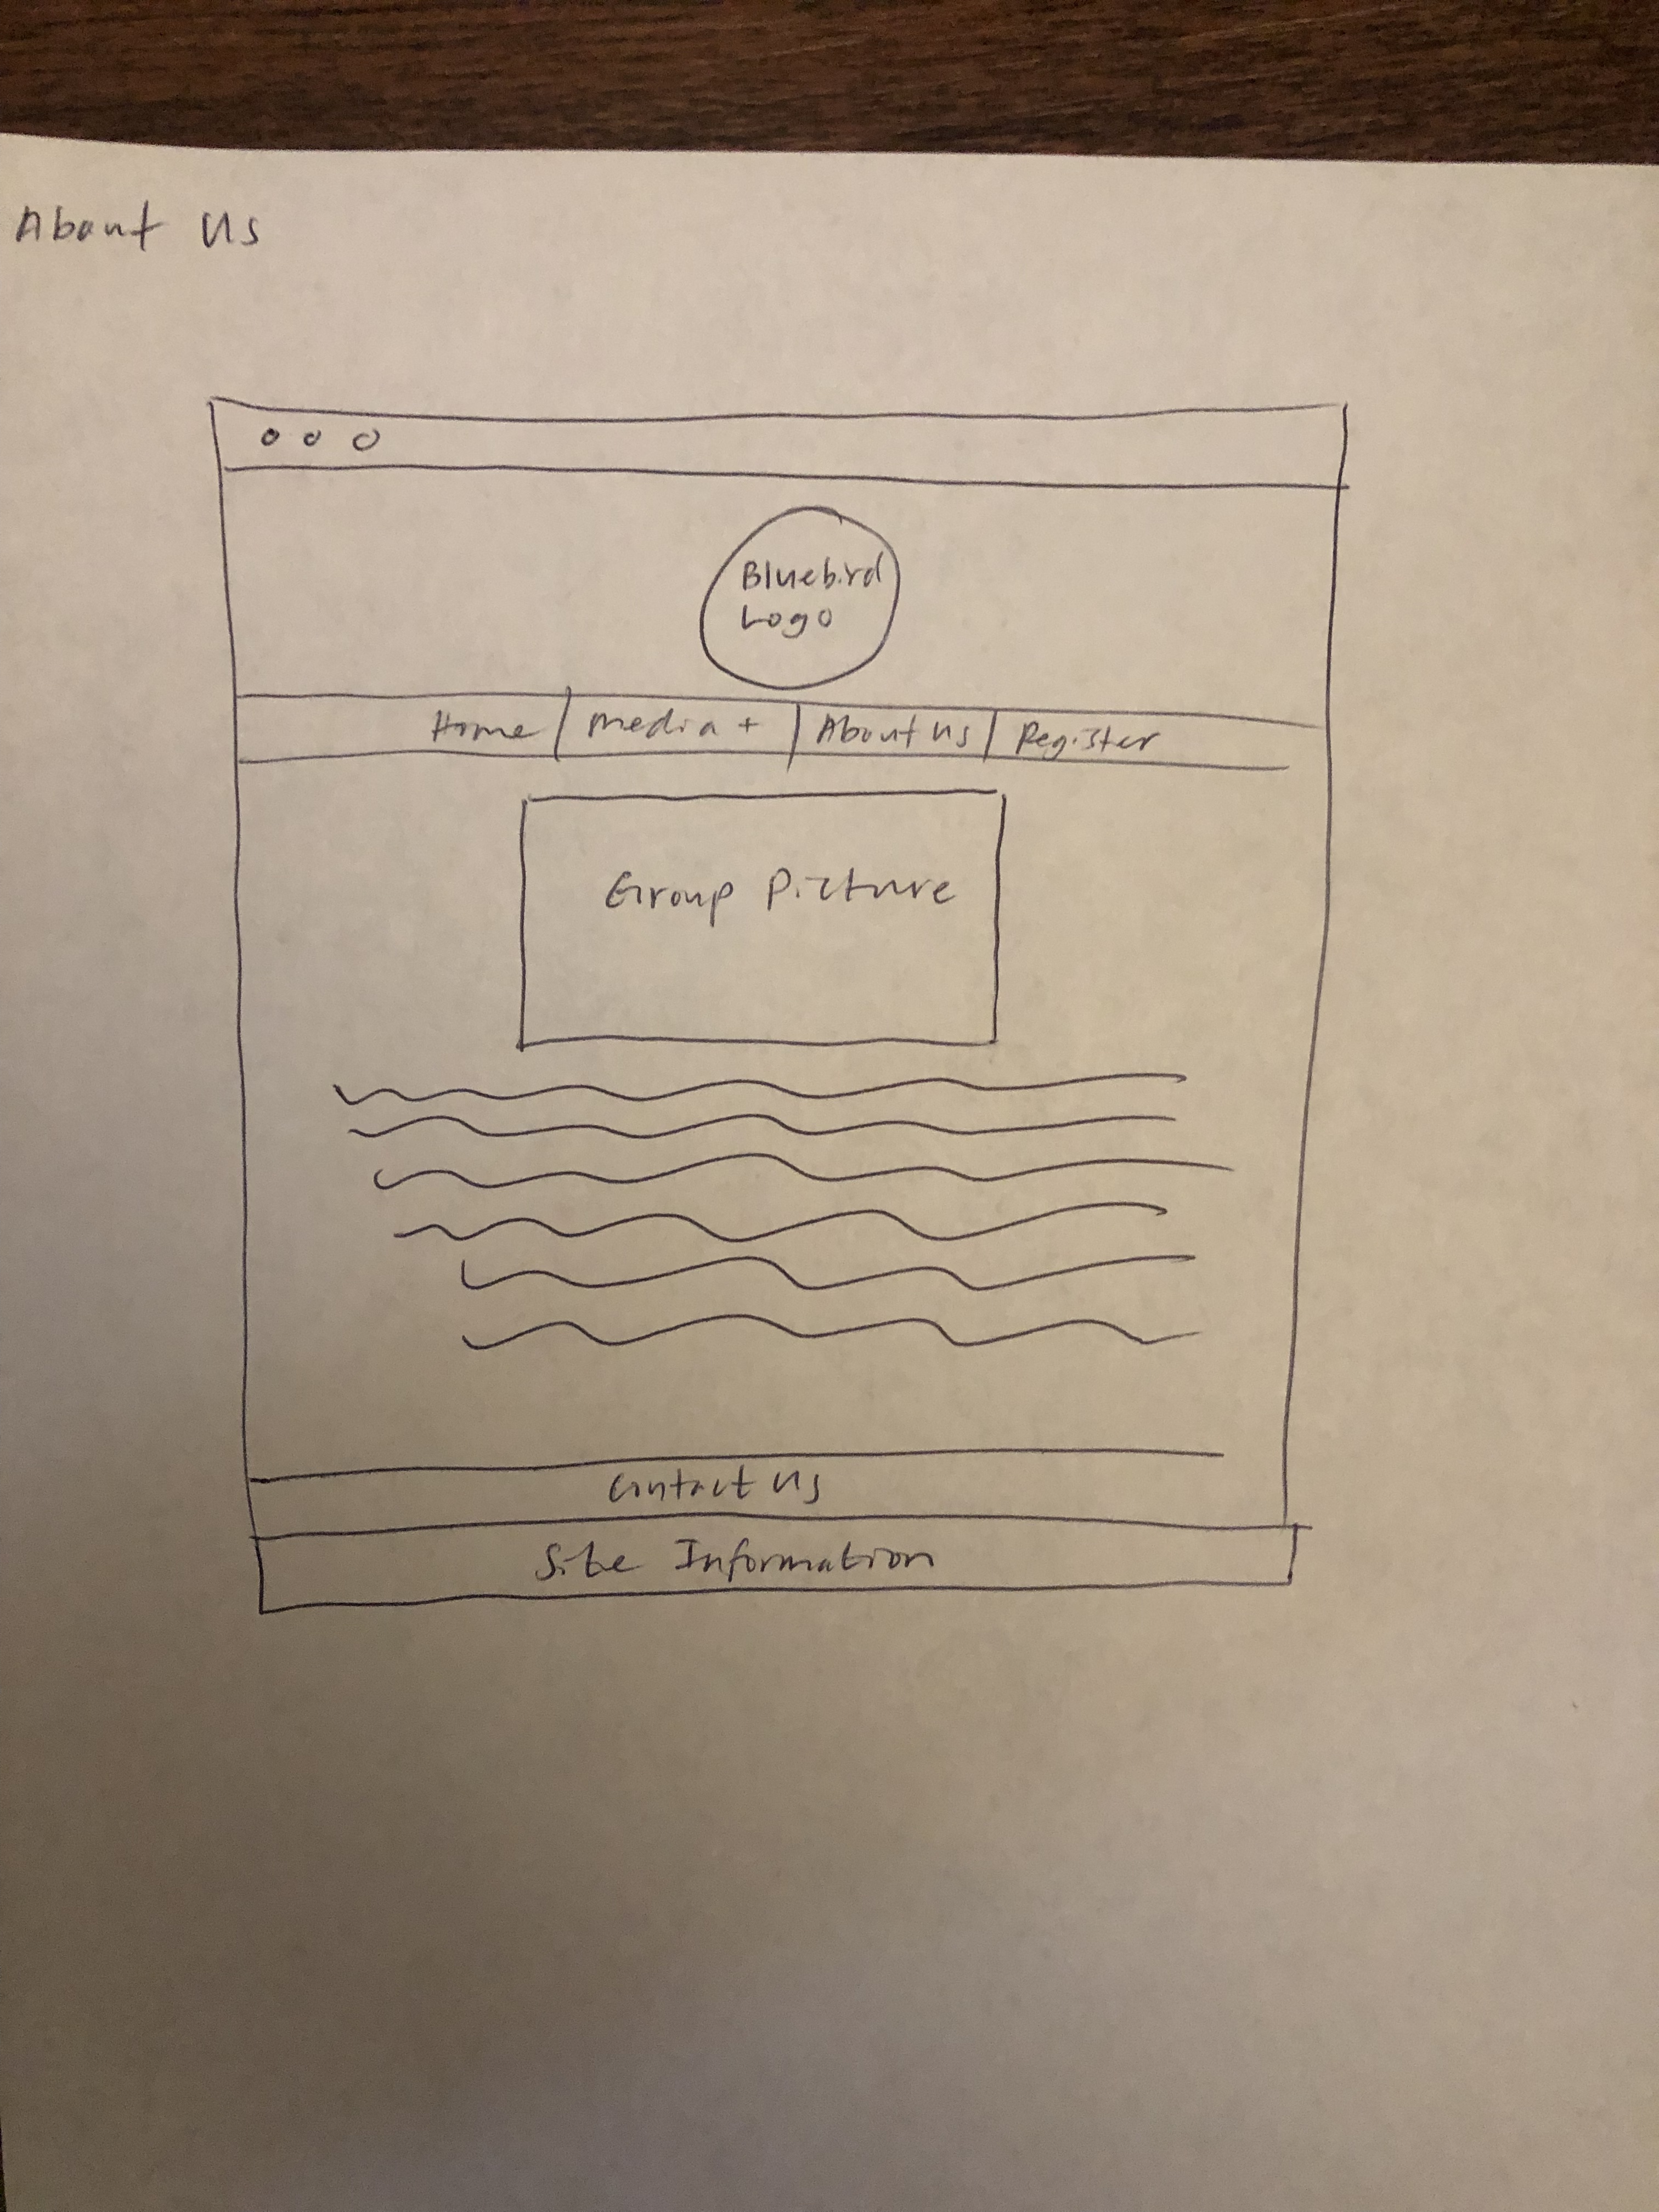 About Us
Bluebird
Logo
Home | Media + | About Us | Register
Group Picture
Contact Us
Site Information